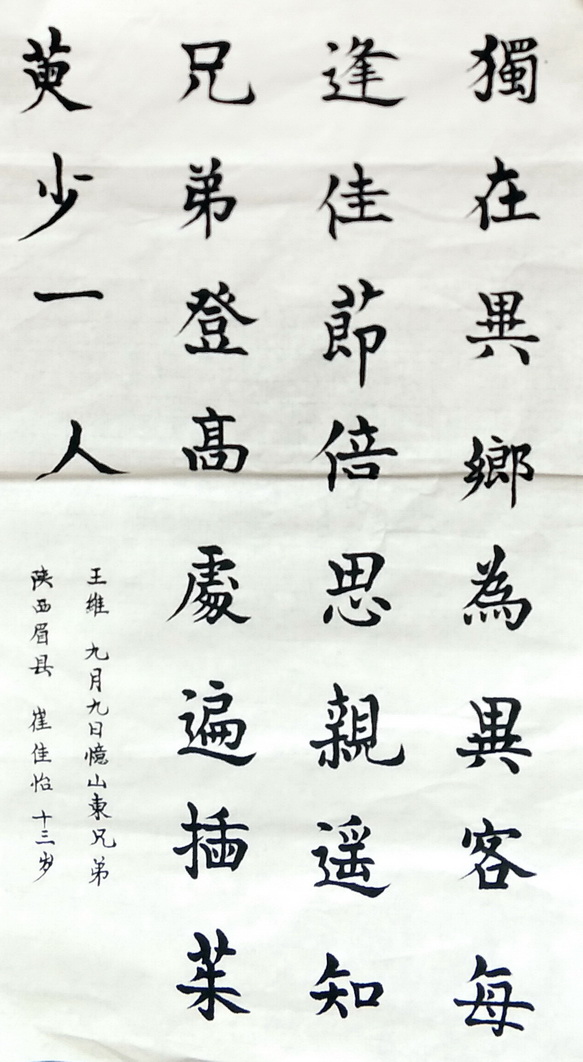 獨在異鄉為異客每
逢佳節倍思親遥知
兄弟登高處遍插茱
萸少一人
王維 九月九日憶山東兄弟
陕西眉县 崔佳怡 十三岁